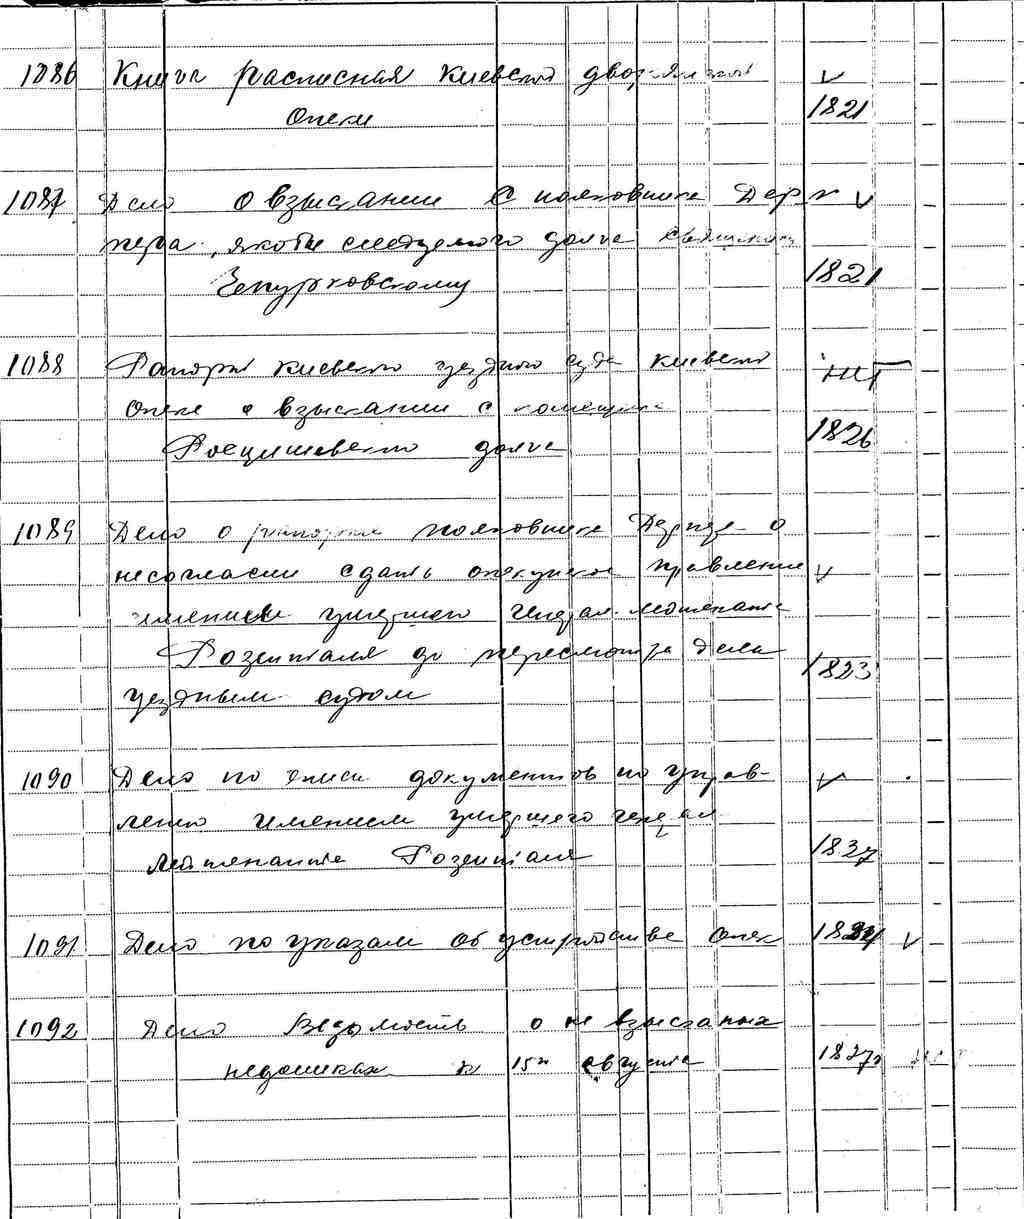 1086 Книга расписная Киевской дворянской ѵ
Опеки 1821
1087 Дело о взыскании с полковника Дерп ѵ
пера, якобы следуемого долга
Чепурковскому 1821
1088 Рапорт Киевского уездного суда Киевской нет
Опеке о взыскании с помещика
Росцишевского долга 1826
1089 Дело о рапорте полковника о
несогласии сдать опекунское правление ѵ
имением умершего генерал-лейтенанта
Розенталя до пересмотра дела 1823
уездным судом
1090 Дело по описи документов по управ- ѵ
лению имением умершего генерал
лейтенанта Розенталя 1827
1091 Дело по указам об устройстве опек ѵ
1092 Дело Ведомость о не взысканных
недоимках к 15м августа 1827